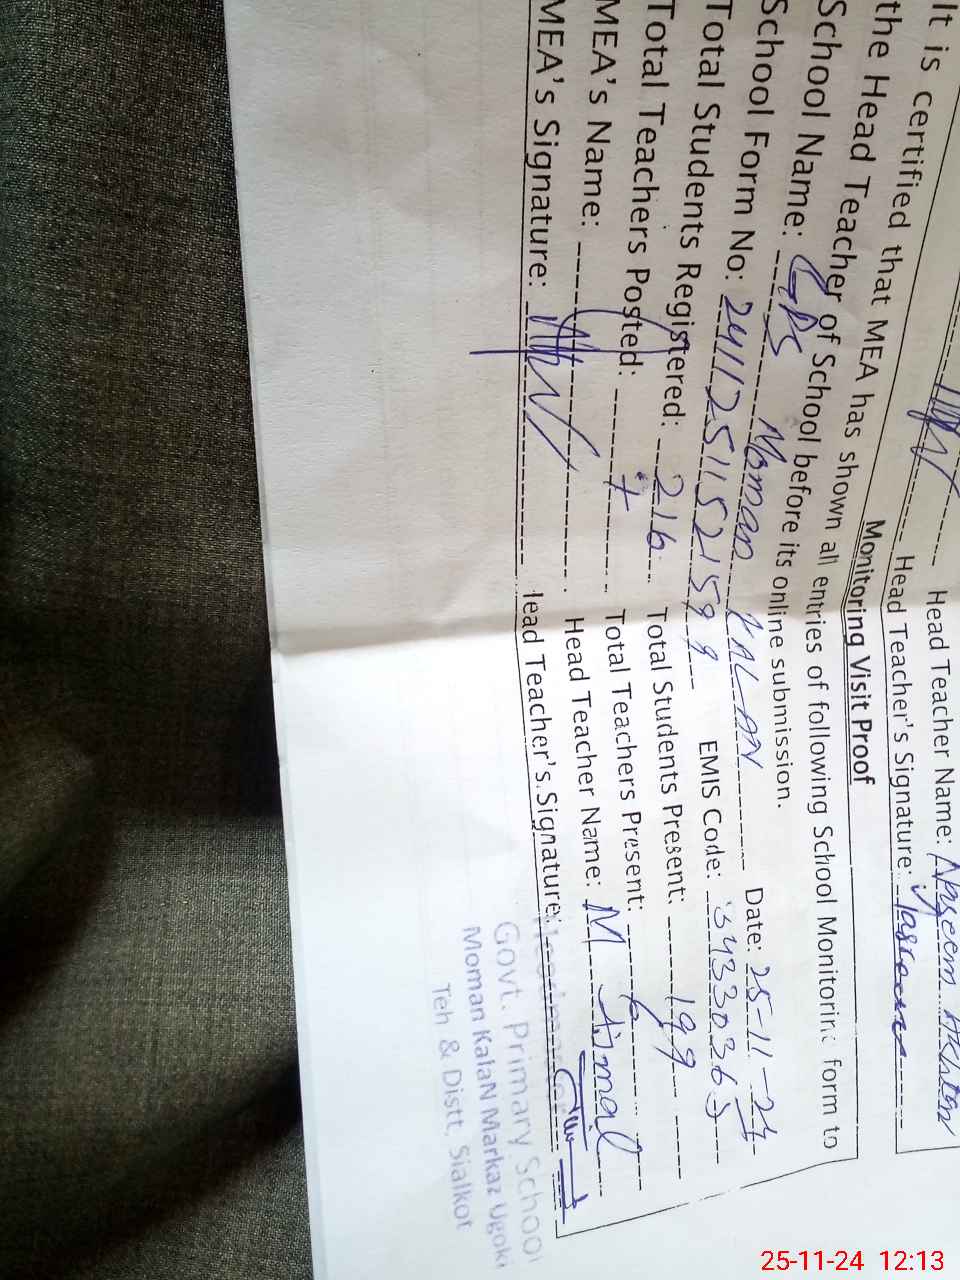 Head Teacher Name: Naseem Akhtar
Head Teacher's Signature:
Monitoring Visit Proof
It is certified that MEA has shown all entries of following School Monitoring form to
the Head Teacher of School before its online submission.
School Name: GPS Moman KALAN Date: 25-11-24
School Form No: 24112511521599 EMIS Code: 34330365
Total Students Registered: 216 Total Students Present: 199
Total Teachers Posted: 7 Total Teachers Present: 6
MEA's Name: Head Teacher Name: M
MEA's Signature: Head Teacher's Signature:
Govt. Primary School
Moman KalaN Markaz Ugoki
Teh & Distt. Sialkot
25-11-24 12:13